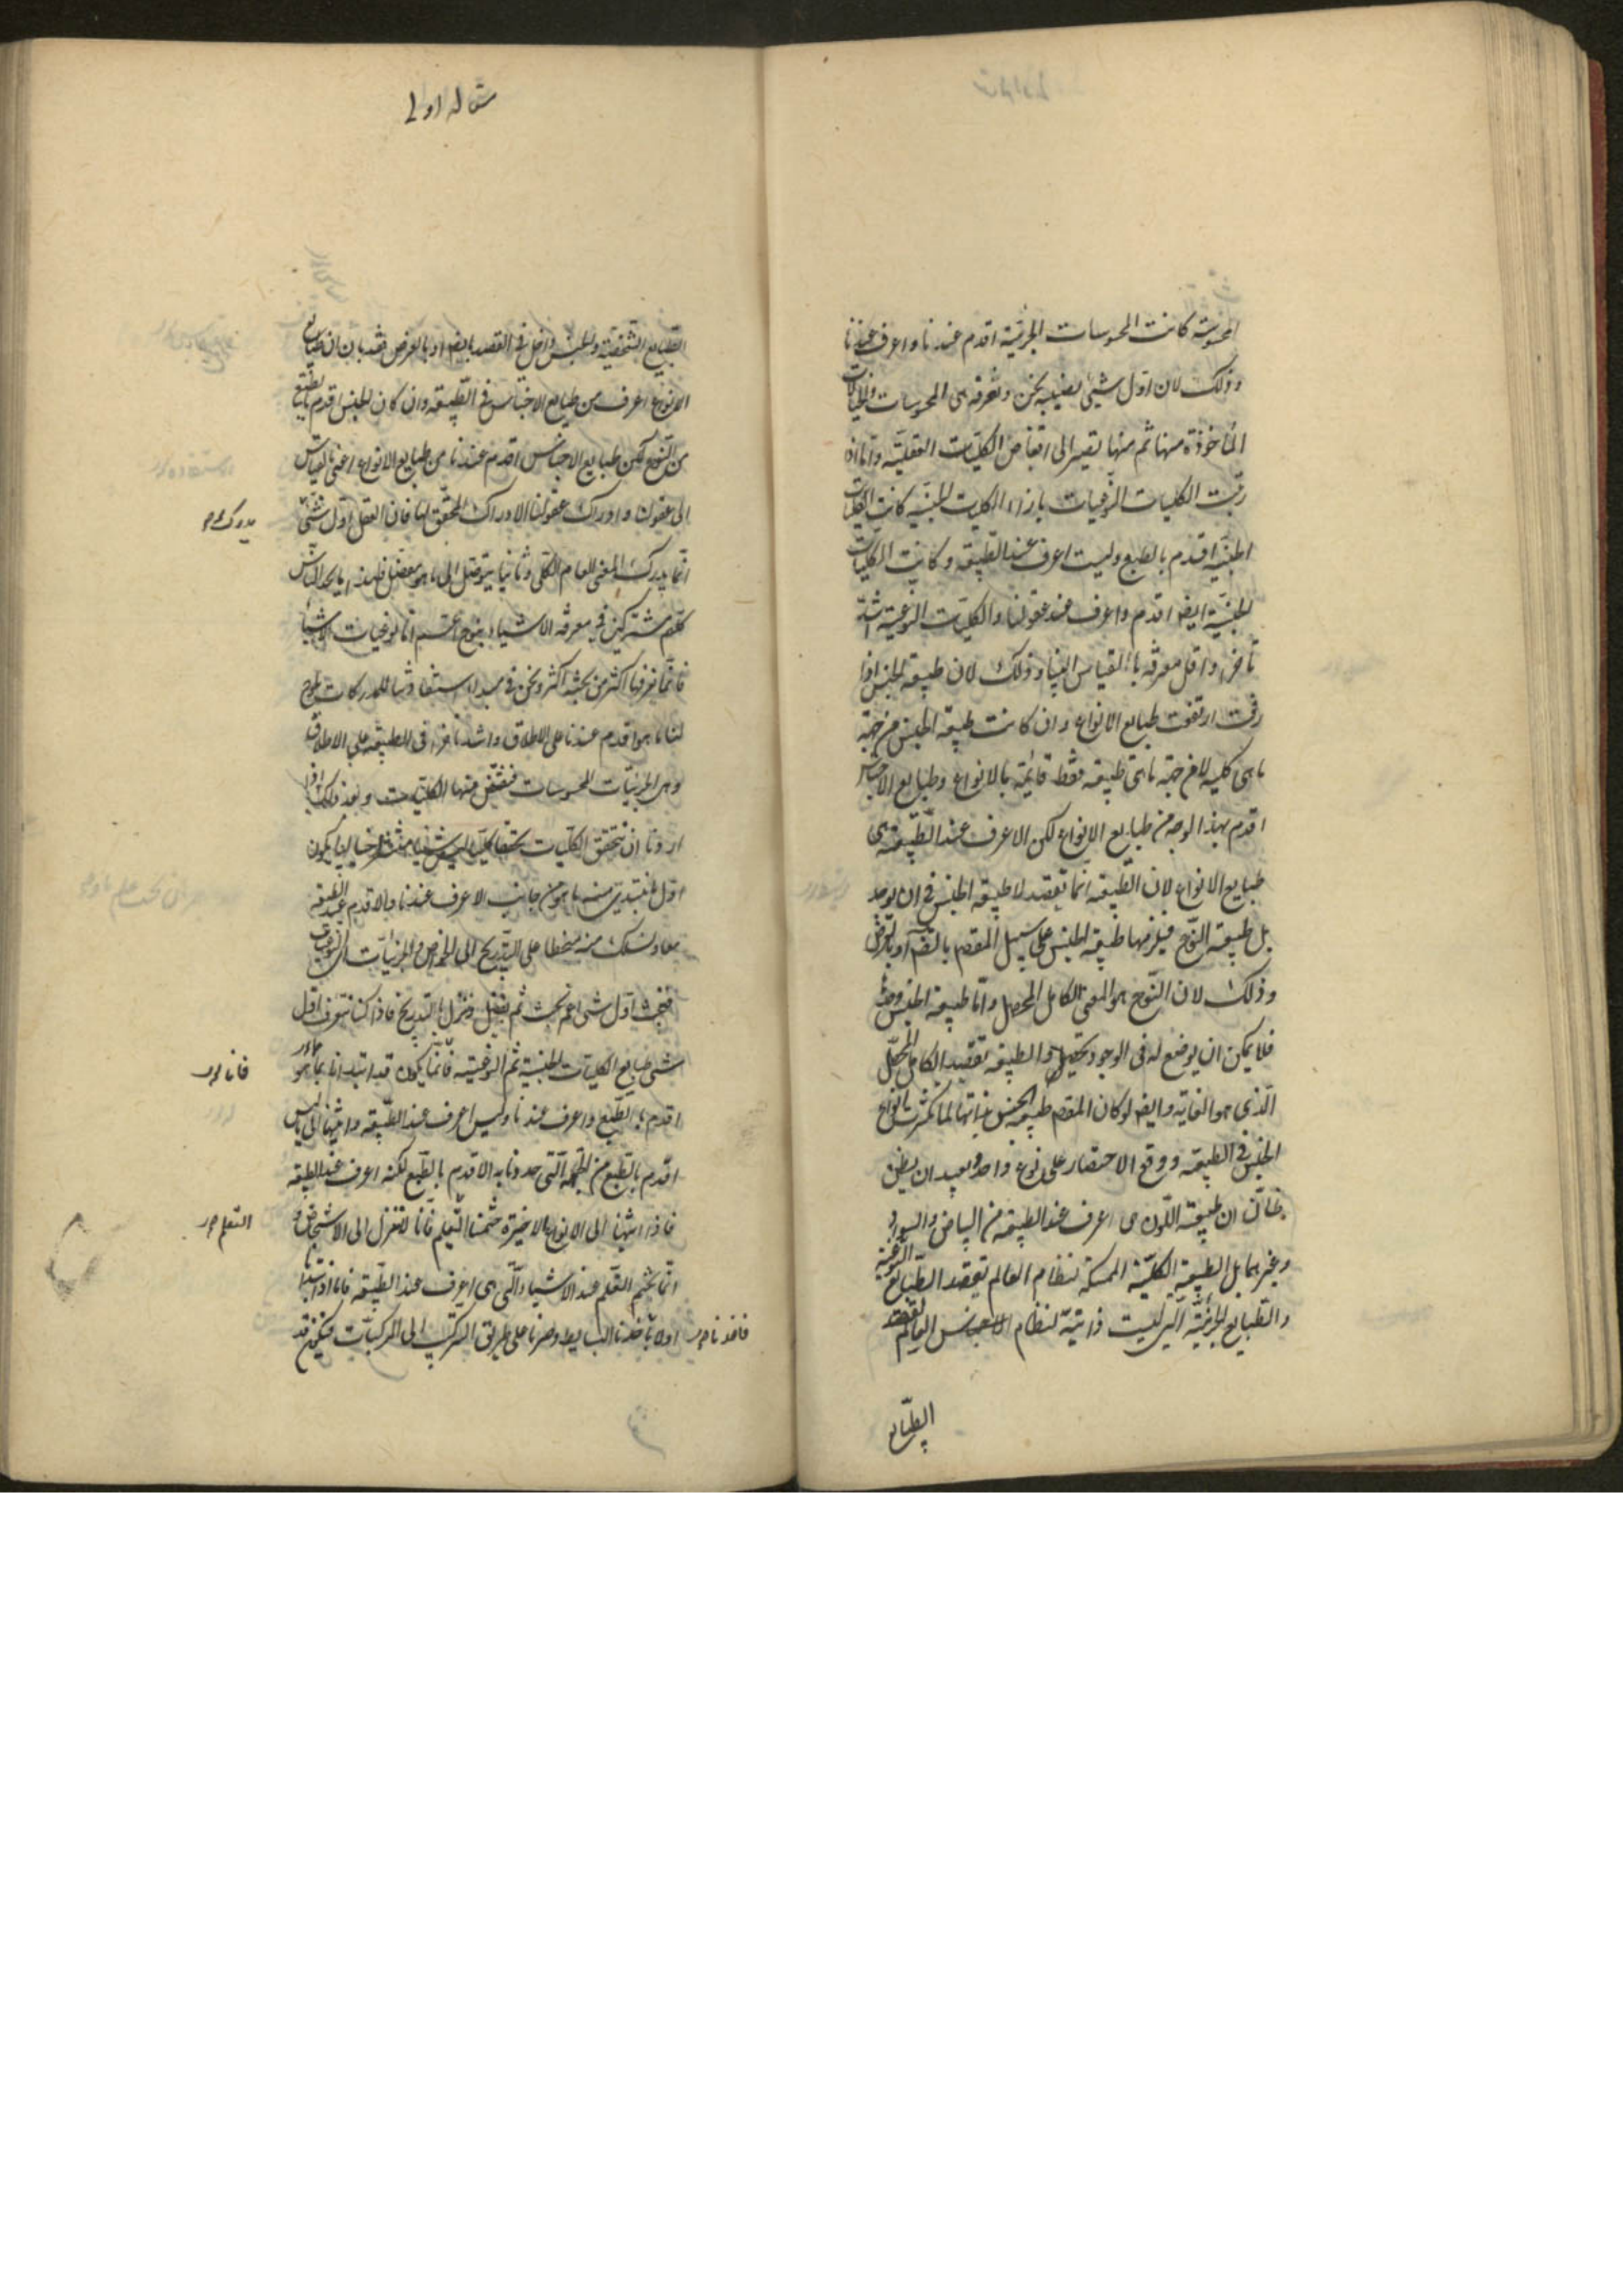 المحسوسة كانت المحسوسات الجزئية اقدم عندنا واعرف عندنا
وذلك لان اول شيئ نصيبه نحن ونعرفه هى المحسوسات والخيالات
المأخوذة منها ثم منها نصير الى اقتناص الكليات العقلية واما اذا
رتبت الكليات النوعيات بازاء الكليات الجنسية كانت الكليات
الجنسية اقدم بالطبع وليست اعرف عند الطبيعة وكانت الكليات
الجنسية ايضا اقدم واعرف عند عقولنا والكليات النوعية اشد
تأخرا واقل معرفة بالقياس الينا وذلك لان طبيعة الجنس اذا
رفعت ارتفعت طبايع الانواع وان كانت طبيعة الجنس من جهة
ما هى كلية لا من جهة ما هى طبيعة فقط قائمة بالانواع وطبايع الاجناس
اقدم بهذا الوجه من طبايع الانواع لكن الاعرف عند الطبيعة هى
طبايع الانواع لان الطبيعة انما تقصد لا طبيعة الجنس فى ان يوجد
بل طبيعة النوع فيلزمها طبيعة الجنس على سبيل المقصد بالضم او بالعرض
وذلك لان النوع هو المعنى الكامل المحصل واما طبيعة الجنس وحدها
فلا يمكن ان يوضع له فى الوجود تحصيل والطبيعة تقصد الكامل المحصل
الذى هو الغاية وايضا لو كان المقصد طبيعة الجنس بذاتها لما تكثرت انواع
الجنس فى الطبيعة ووقع الاختصار على نوع واحد وبعيد ان يظن
ظان ان طبيعة اللون هى اعرف عند الطبيعة من البياض والسواد
وغيرهما بل الطبيعة الكلية الممسكة لنظام العالم تقصد الطبايع النوعية
والطبايع الجزئية التى ليست ذاتية لنظام العالم تقصد
الطبايع
مقاله اولى
الطبايع الشخصية والجنس داخل فى القصد بالضم او بالعرض فقد بان ان طبايع
الانواع اعرف من طبايع الاجناس فى الطبيعة وان كان الجنس اقدم بالطبع
من النوع لكن طبايع الاجناس اقدم عندنا من طبايع الانواع اعنى بالقياس
الى عقولنا وادراك عقولنا الادراك المحقق لها فان العقل اول شئ
يدرك
انما يدرك المعنى العام الكلى وثانيا يتوصل الى ما هو مفصل فلهذا ما يجد الناس
كلهم مشتركين فى معرفة الاشياء بنوع اعم اما نوعيات الاشياء
فانما يعرفها اكثر من بحثه اكثر ونحن فى مبدا استفادتنا للمدركات يلوح
لنا ما هو اقدم عندنا على الاطلاق واشد تأخرا فى الطبيعة على الاطلاق
وهى الجزئيات المحسوسات فنقتنص منها الكليات وبعد ذلك اذا
اردنا ان نتحقق الكليات تحققا كليا ليس خياليا يكون
اول ما نبتدئ منه ما هو من جانب الاعرف عندنا والاقدم عند الطبيعة
معا ونسلك منه منحطا على التدريج الى الخواص والجزئيات اى النوعيات
فنبحث اول شئ اعم بحث ثم نفصل وننزل بالتدريج فاذا كنا نتعرف اول
شئ طبايع الكليات الجنسية ثم النوعية فانما يكون قد ابتدانا بما هو
فانا
اقدم بالطبع واعرف عندنا وليس اعرف عند الطبيعة وانتهينا الى ما ليس
اقدم بالطبع من الجهة التى حددنا به الاقدم بالطبع لكنه اعرف عند الطبيعة
فاذا انتهينا الى الانواع الاخيرة ختمنا التعليم فانا لا ننزل الى الاشخاص و
التعلم
انما نختم التعلم عند الاشياء التى هى اعرف عند الطبيعة فانا اذا ابتدأنا
اولا فاخذنا البسايط وصرنا على طريق التركيب الى المركبات فيكون قد
فاخذنا